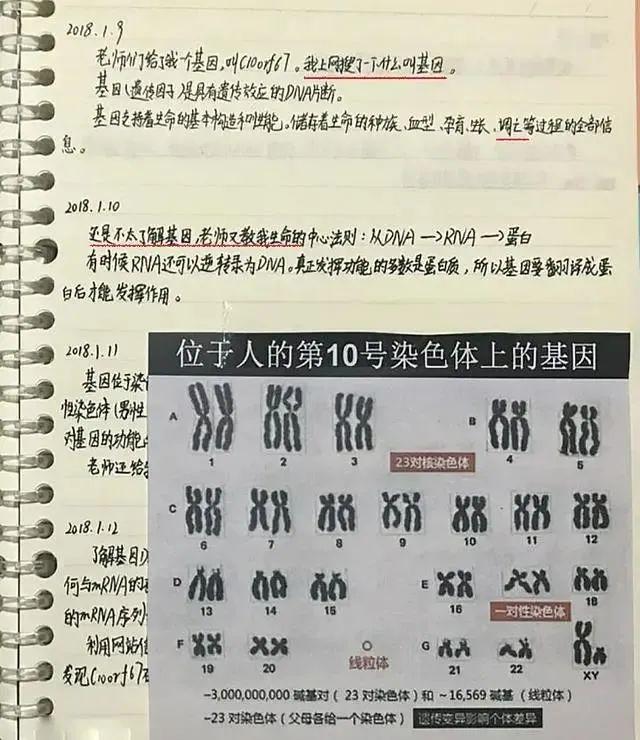 2018.1.9
老师们给了我一个基因,叫C10orf67。我上网搜了一下什么叫基因。
基因(遗传因子)是具有遗传效应的DNA片断。
基因支持着生命的基本构造和性能。储存着生命的种族、血型、孕育、生长、凋亡等过程的全部信
息。
2018.1.10
还是不太了解基因,老师又教我生命的中心法则:从DNA→RNA→蛋白
有时候RNA还可以逆转录为DNA。真正发挥功能的多数是蛋白质,所以基因要翻译成蛋
白后才能发挥作用。
2018.1.11
基因位于染
性染色体(男性
对基因的功能
老师还给
2018.1.12
了解基因D
何与mRNA的
的mRNA序列
利用网站
发现C10orf67
位于人的第10号染色体上的基因
A 1 2 3 B 4 5
23对核染色体
C 6 7 8 9 10 11 12
D 13 14 15 E 16 18
一对性染色体
F 19 20 线粒体 G 21 22 XY
~3,000,000,000 碱基对( 23 对染色体)和 ~16,569 碱基 (线粒体)
~23 对染色体(父母各给一个染色体) 遗传变异影响个体差异